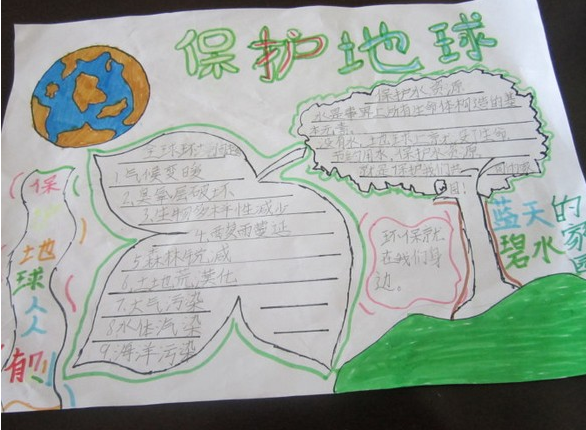 保护地球
保护水资源
水是世界上所有生命体构造的基
本元素。
没有水,土地
节约用水,保护水资源
就是保护我们
园!
全球环
1.气候变暖
2.臭氧层破坏
3.生物多样性减少
4.酸雨蔓延
5.森林锐减
6.土地荒漠化
7.大气污染
8.水体污染
9.海洋污染
环保就
在我们身
边。
保护地球人人有
蓝天的
碧水家园